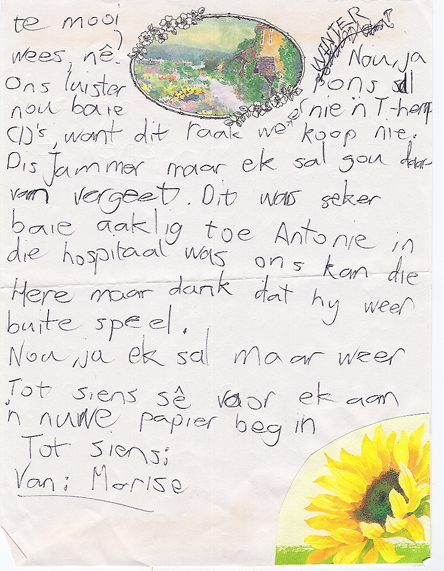 te mooi
WINTER
wees, nê? Nou, ja
Ons luister ons sal
nou baie nie 'n T-hemp
CD's, want dit raak weer koop nie.
Dis jammer maar ek sal gou daar-
van vergeet. Dit was seker
baie aaklig toe Antonie in
die hospitaal was ons kan die
Here maar dank dat hy weer
buite speel.
Nou, ja ek sal maar weer
Tot siens sê voor ek aan
'n nuwe papier begin
Tot siens;
Van: Marise